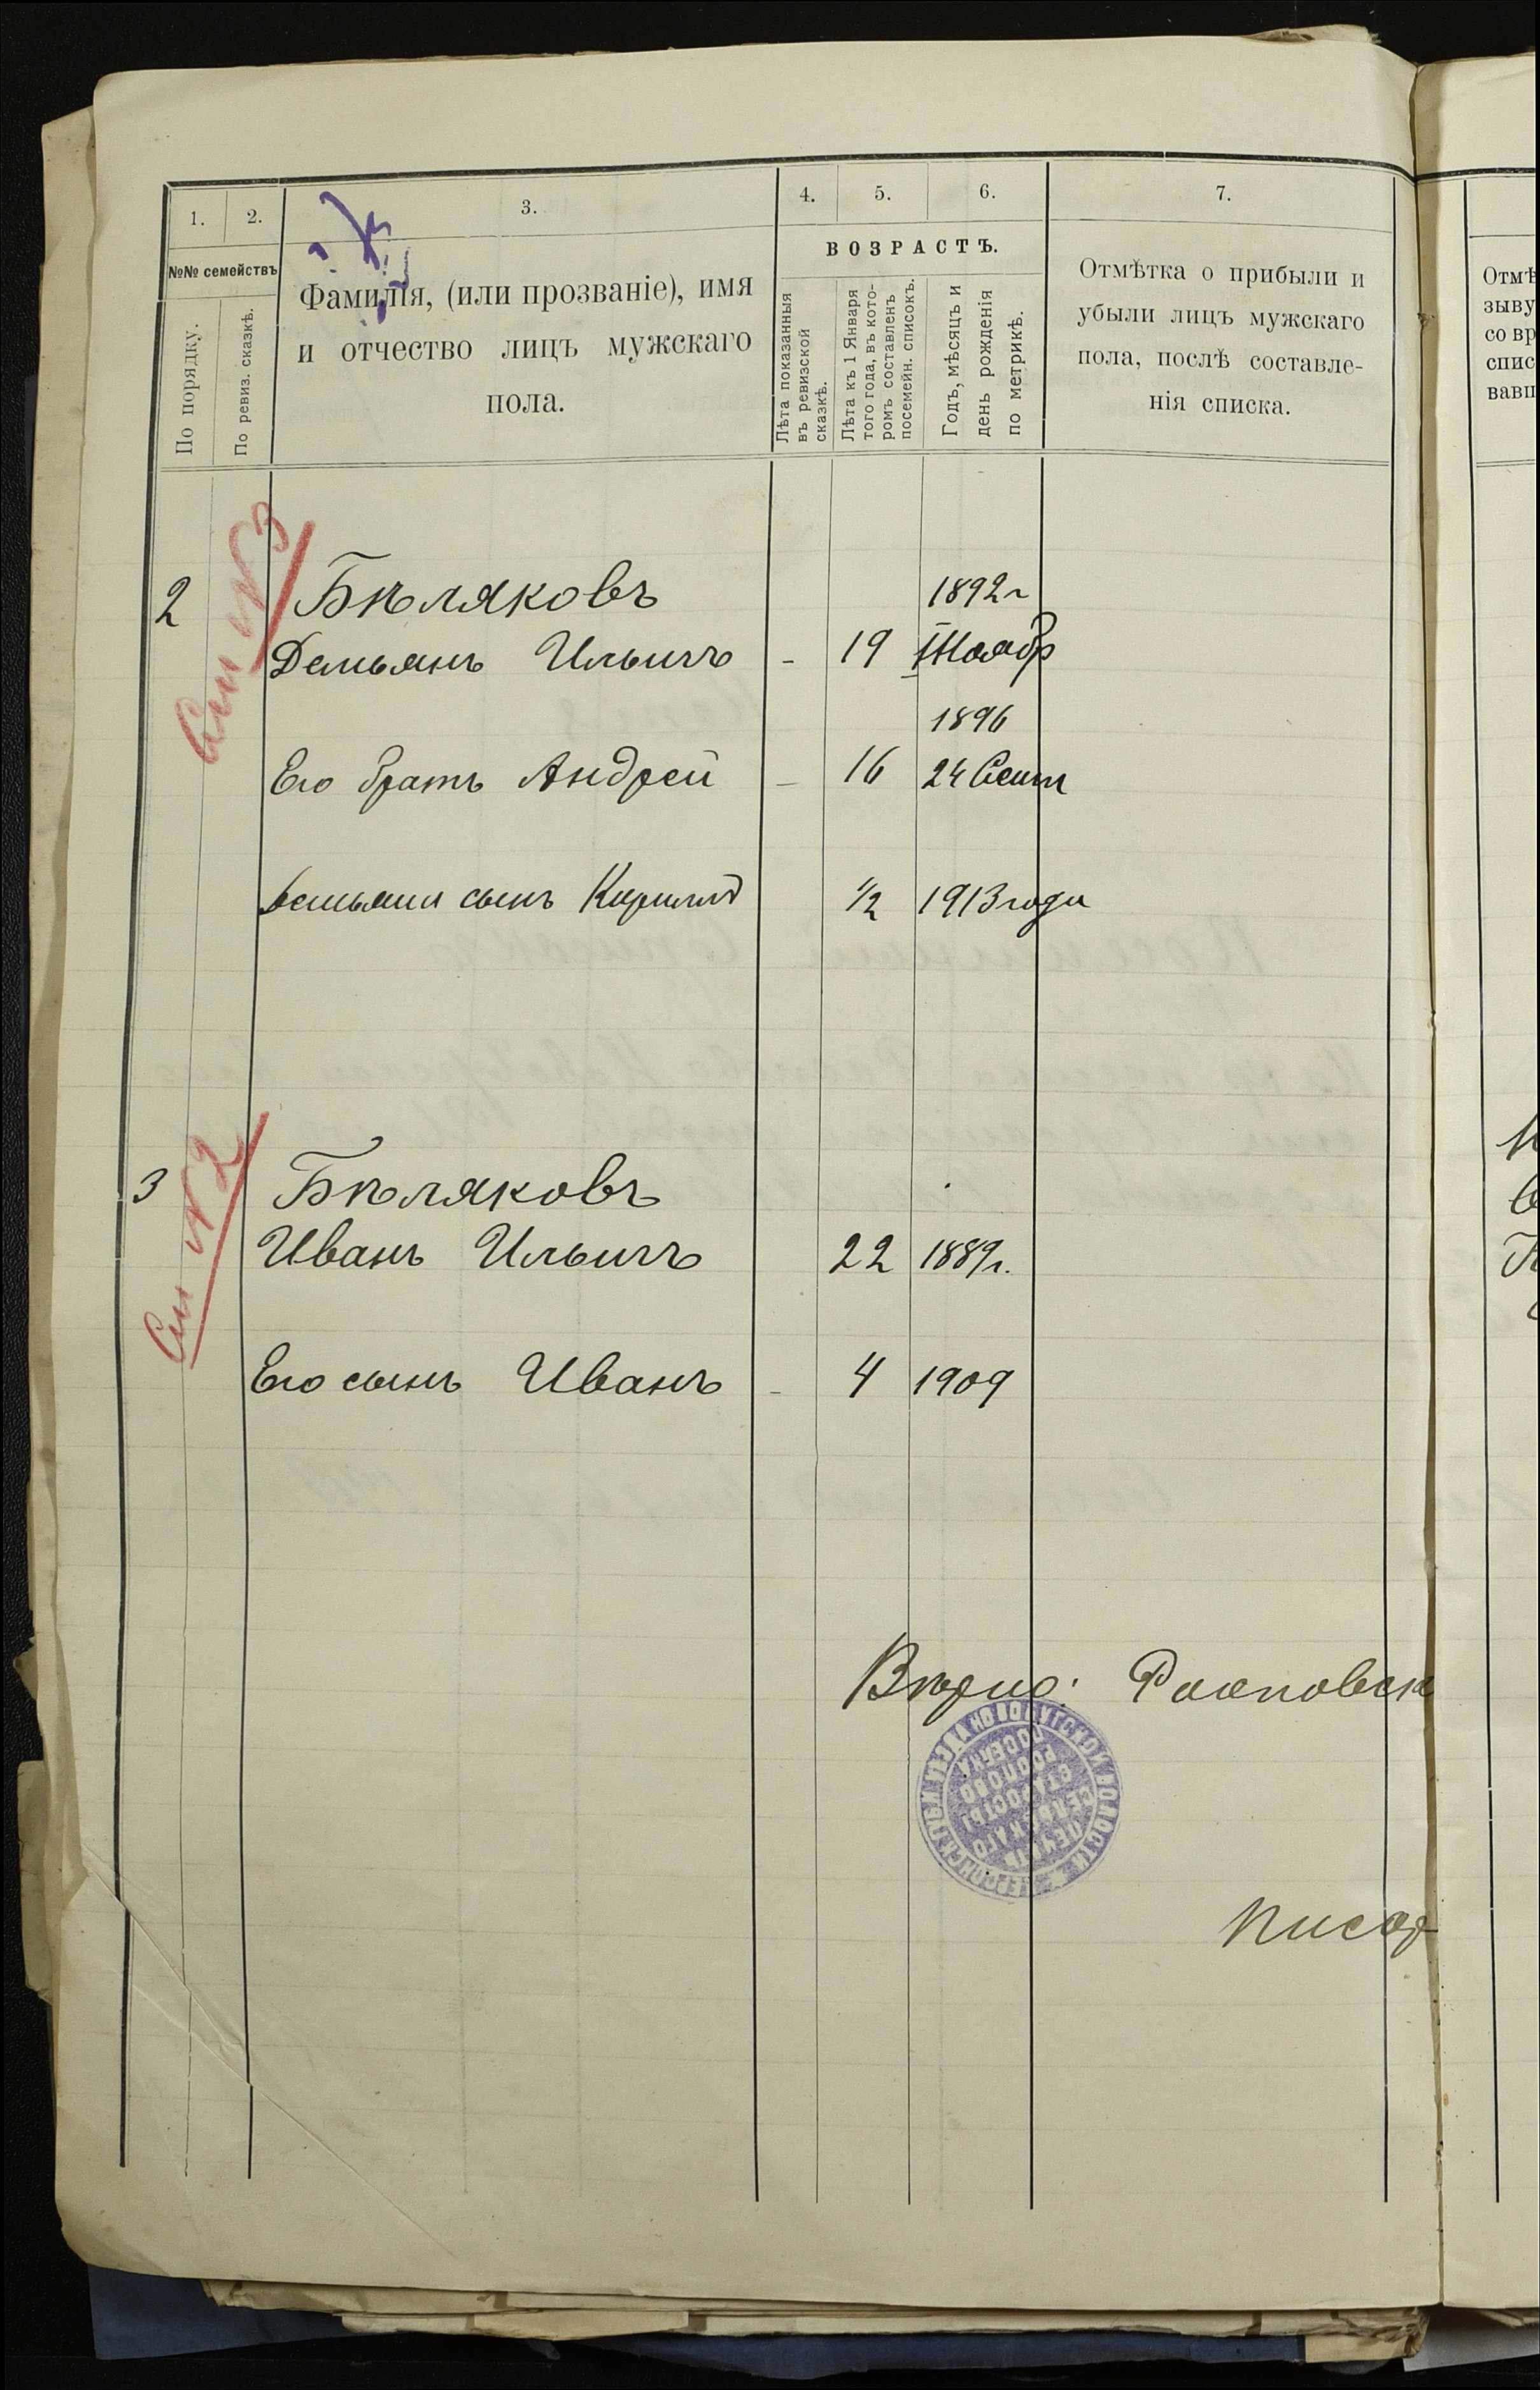 1. 2. 3. 4. 5. 6. 7.
№№ семействъ
По порядку.
По ревиз. сказкѣ.
Фамилія, (или прозваніе), имя
и отчество лицъ мужскаго
пола.
ВОЗРАСТЪ.
Лѣта показанныя
въ ревизской
сказкѣ.
Лѣта къ 1 Января
того года, въ кото-
ромъ составленъ
посемейн. списокъ.
Годъ, мѣсяцъ и
день рожденія
по метрикѣ.
Отмѣтка о прибыли и
убыли лицъ мужскаго
пола, послѣ составле-
нія списка.
Отмѣ
зыву
со вр
спис
вавш
См №3
2 Бѣляковъ 1892г
Демьянъ Ильичъ - 19 Ноябр
1896
Его братъ Андрей - 16 24 Сент
Демьяна сынъ Кириллъ 1/2 1913 года
См №2
3 Бѣляковъ
Иванъ Ильичъ 22 1889г.
Его сынъ Иванъ - 4 1909
Вѣрно:
ХЕРСОНСКАГО УѢЗДА НОВОБУГСКОЙ ВОЛОСТИ
ПЕЧАТЬ
СЕЛЬСКАГО
СТАРОСТЫ
ПОСЕЛКА
Писар